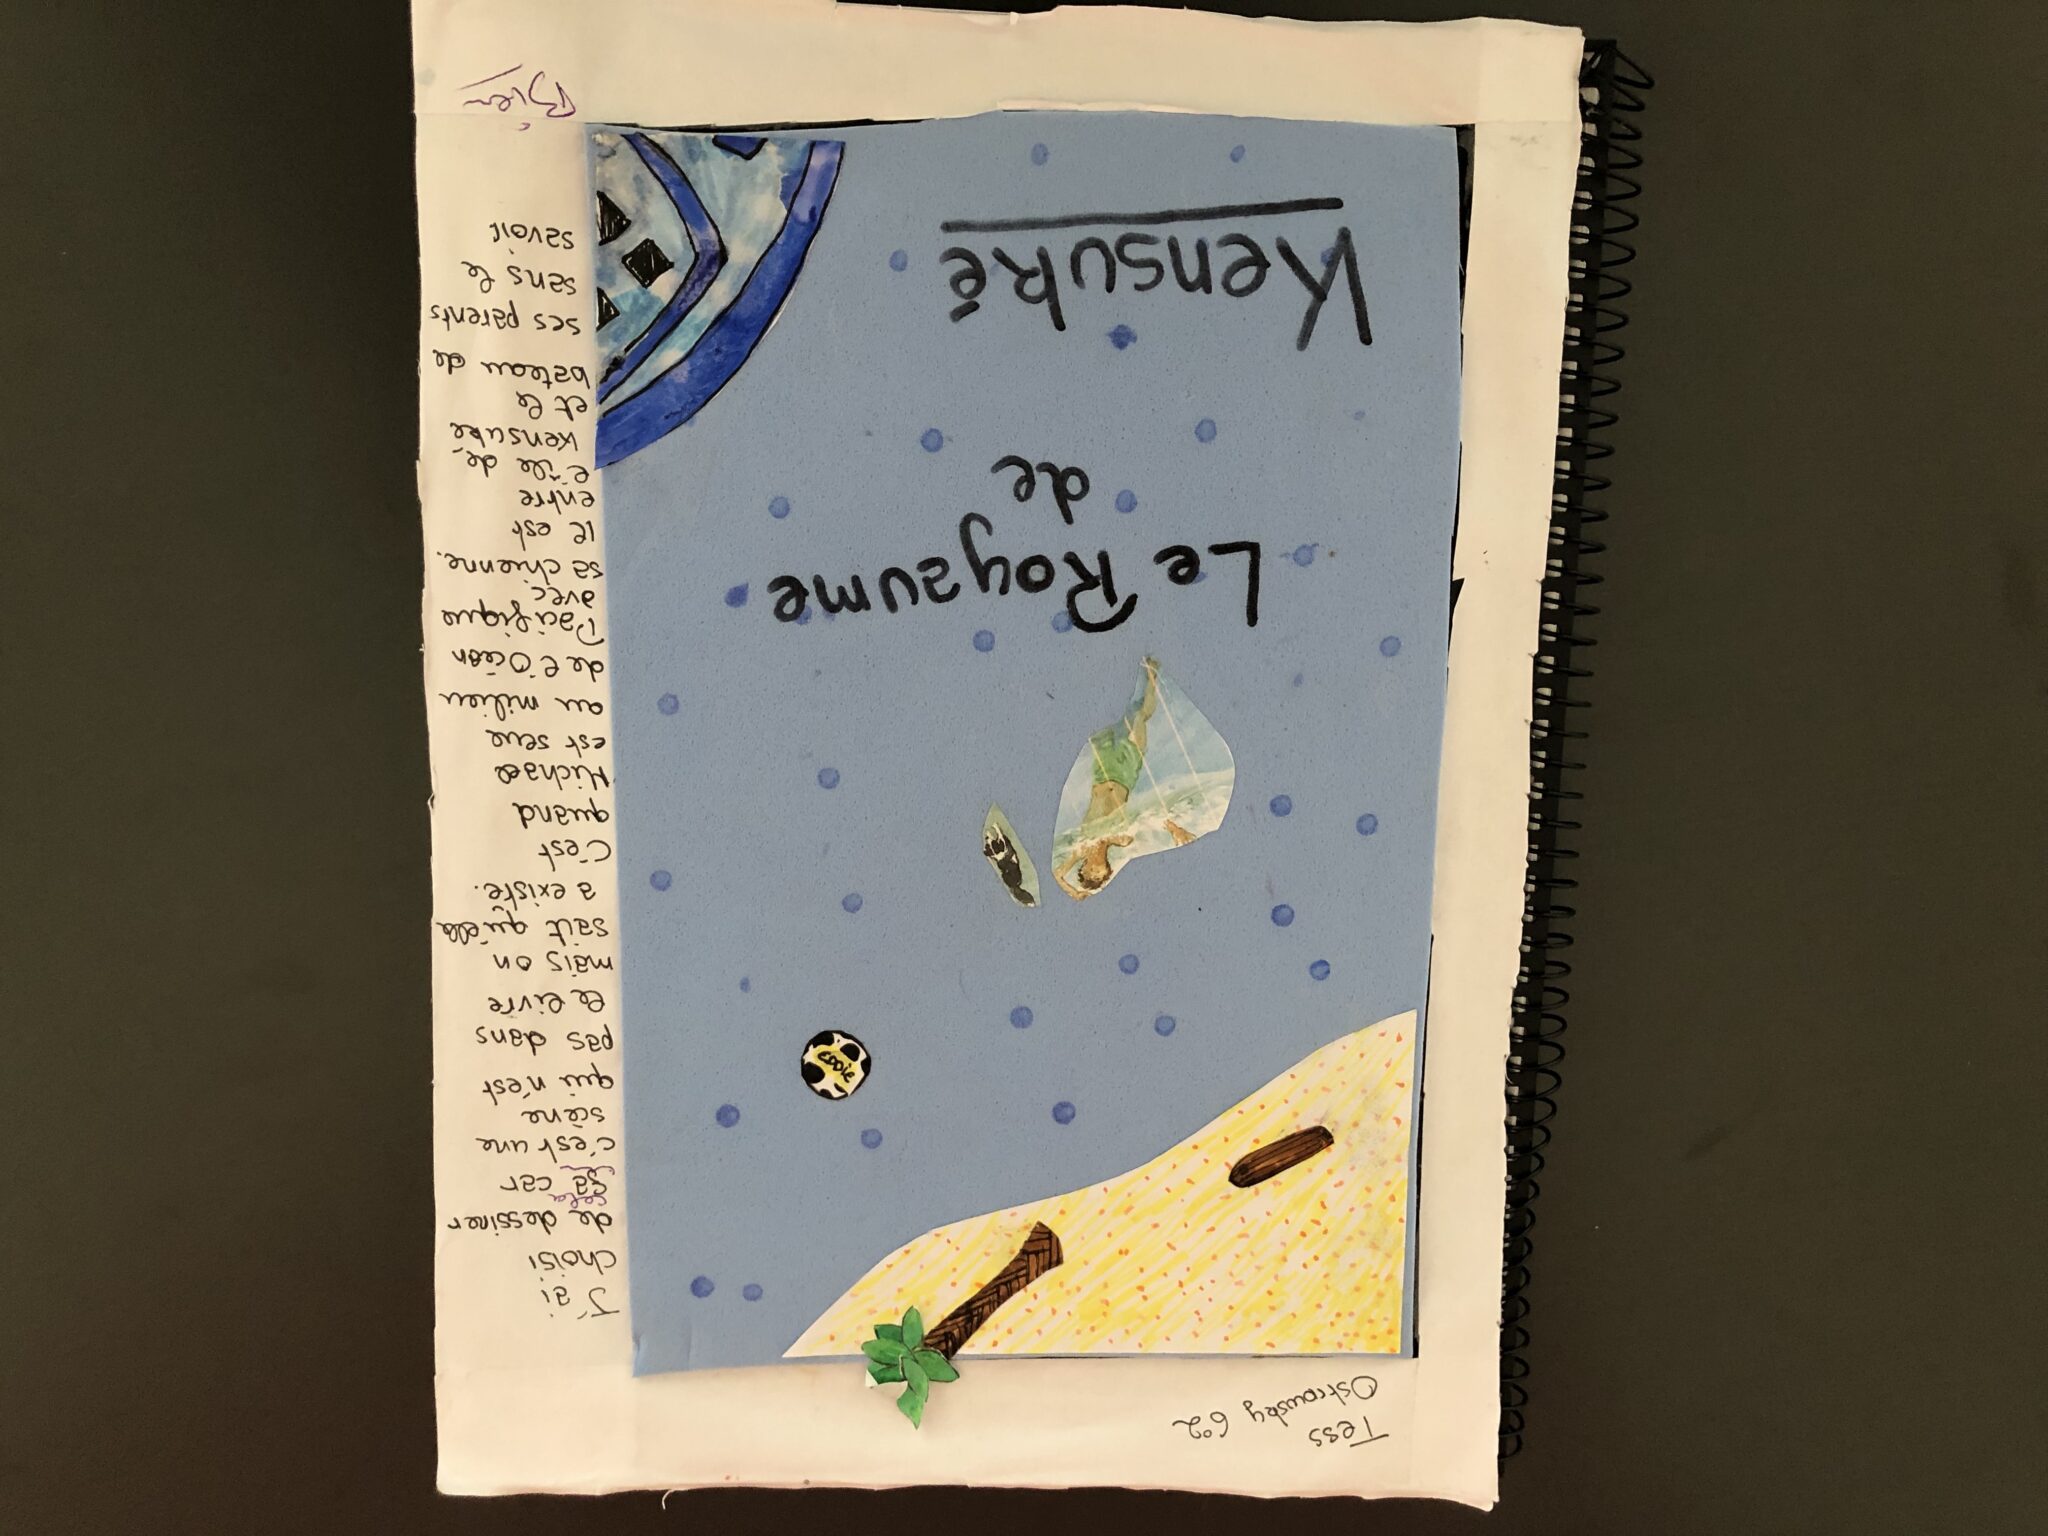 Tess
Ostrowsky 6°2
EDDie
Le Royaume
de
Kensuké
J'ai
choisi
de dessiner
cela
ça car
c'est une
scène
qui n'est
pas dans
le livre
mais on
sait qu'elle
a existé.
C'est
quand
Michael
est seul
au milieu
de l'Océan
Pacifique
avec
sa chienne.
Il est
entre
l'île de
Kensuké
et le
bateau de
ses parents
sans le
savoir
Bien